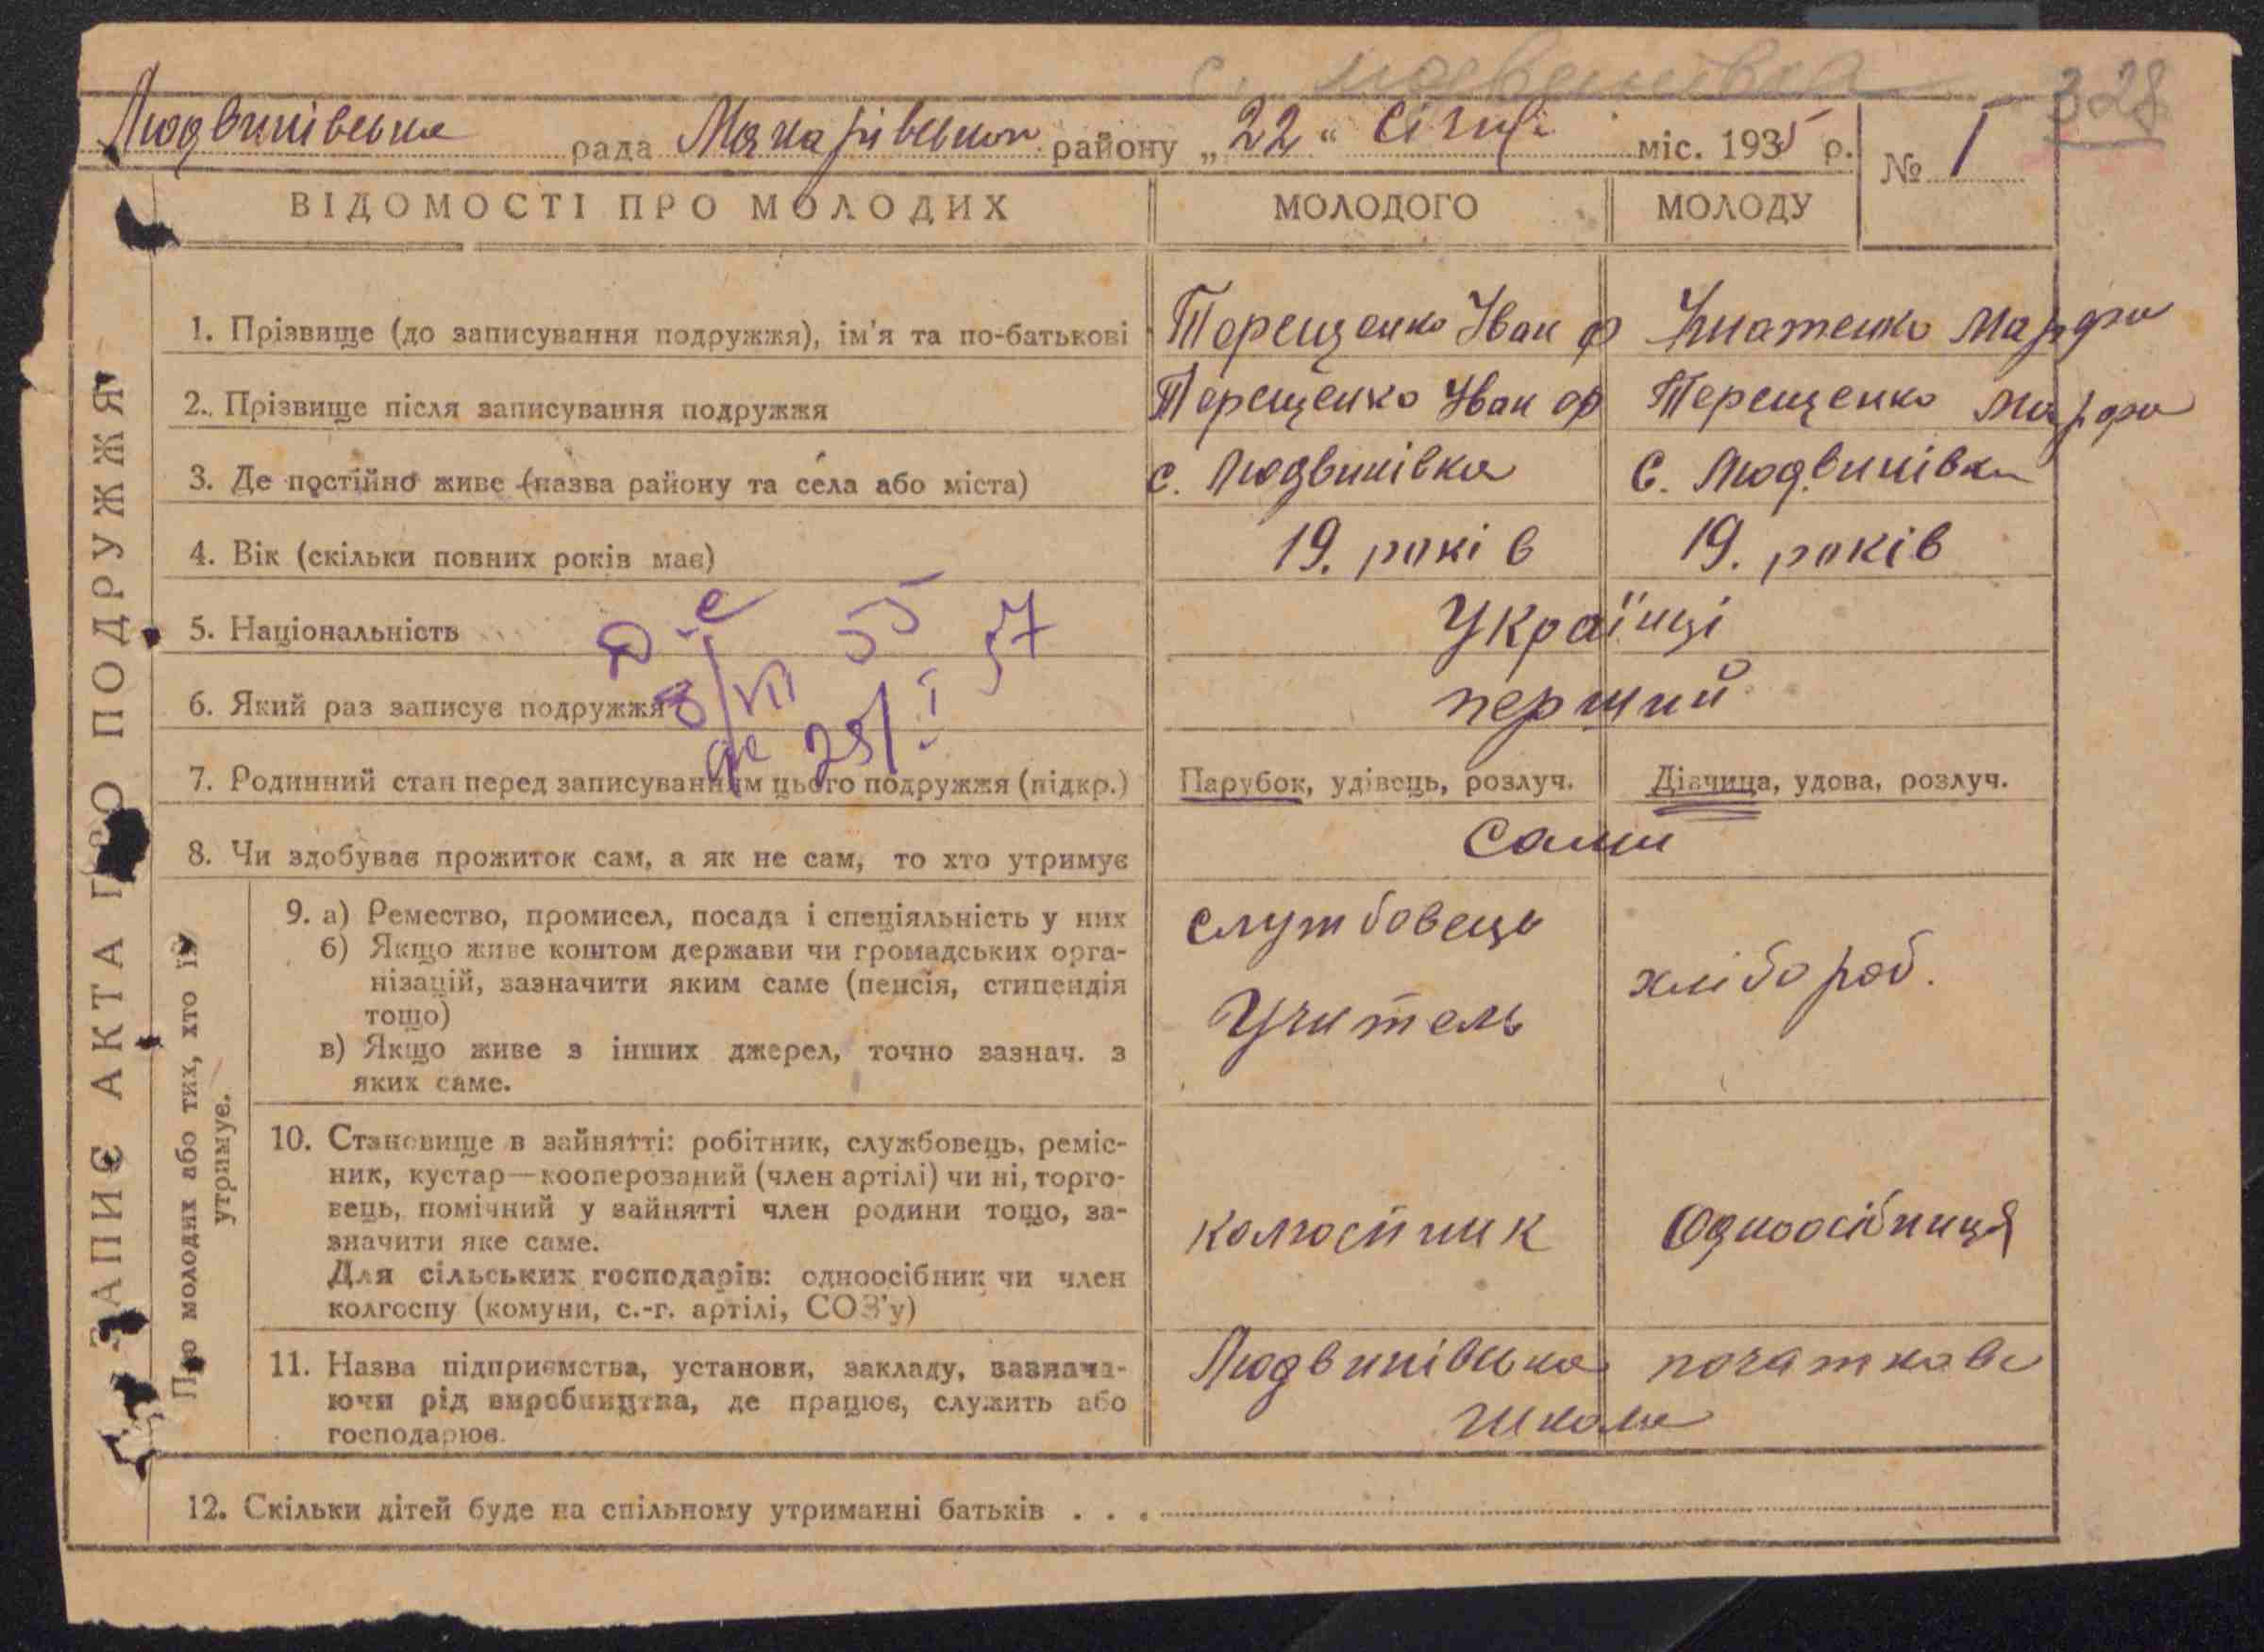 с. Людвинівка 328
Людвинівська рада Макарівського району „22“ січня міс. 1935 р. № 1
ВІДОМОСТІ ПРО МОЛОДИХ МОЛОДОГО МОЛОДУ
ЗАПИС АКТА ПРО ПОДРУЖЖЯ
1. Прізвище (до записування подружжя), ім'я та по-батькові Терещенко Іван Ф Гнатенко Марфа
2. Прізвище після записування подружжя Терещенко Іван Ф Терещенко Марфа
3. Де постійно живе (назва району та села або міста) с. Людвинівка с. Людвинівка
4. Вік (скільки повних років має) 19. років 19. років
5. Національність Українці
6. Який раз записує подружжя перший
8/VII 55
25/I 57
7. Родинний стан перед записуванням цього подружжя (підкр.) Парубок, удівець, розлуч. Дівчина, удова, розлуч.
8. Чи здобуває прожиток сам, а як не сам, то хто утримує сами
Про молодих або тих, хто їх
утримує.
9. а) Ремество, промисел, посада і спеціяльність у них
б) Якщо живе коштом держави чи громадських орга-
нізацій, зазначити яким саме (пенсія, стипендія
тощо)
в) Якщо живе з інших джерел, точно зазнач. з
яких саме.
службовець
Учитель
хлібороб.
10. Становище в зайнятті: робітник, службовець, реміс-
ник, кустар—кооперований (член артілі) чи ні, торго-
вець, помічний у зайнятті член родини тощо, за-
значити яке саме.
Для сільських господарів: одноосібник чи член
колгоспу (комуни, с.-г. артілі, СОЗ'у)
колгоспник Одноосібниця
11. Назва підприємства, установи, закладу, зазнача-
ючи рід виробництва, де працює, служить або
господарює.
Людвинівська початкова
школа
12. Скільки дітей буде на спільному утриманні батьків . . .